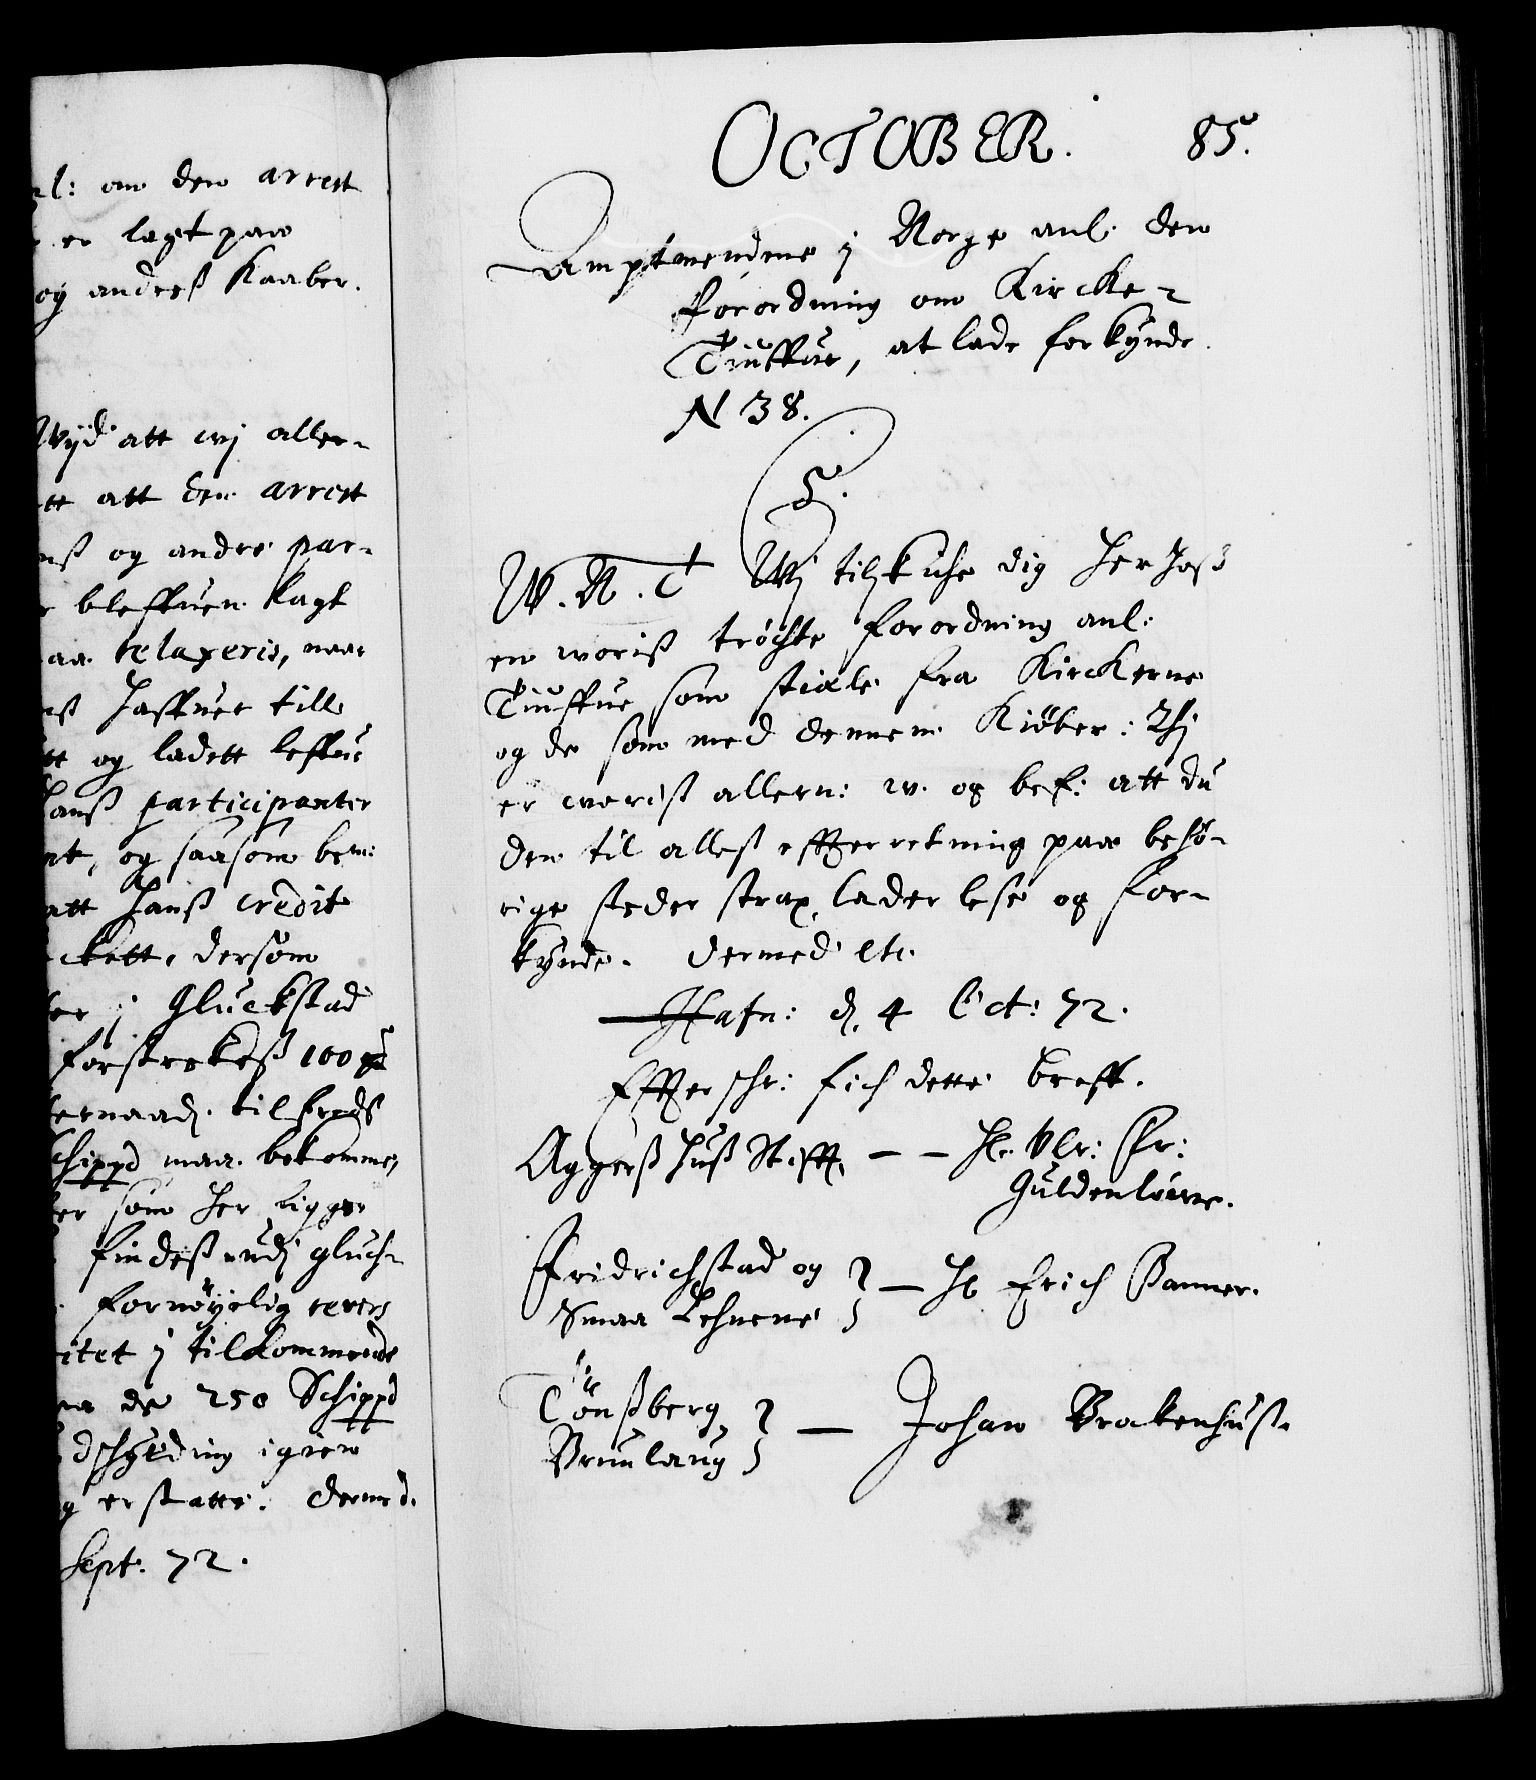 al: om den arrest
er lagt paa
og anders Kaaber.
Wiid att wj aller-
att den arrest
og andre par-
bleffuen lagt
relaxeris, naar
haffuer till
og ladett leffue
hans participanter
og saasom bem:
att hans credit
dersom
j Gluckstad
forstrekess 100
tilfreds
Schippd maa bekomme,
som her ligger
findess udj gluch-
fornøyelig revers
j tilkommende
de 250 Schippd
igien
erstatte. dermed.
Sept: 72.
OCTOBER. 85.
Amptmendene j Norge anl: den
forordning om Kircke-
Tiuffue, at lade forkynde.
N 38.
S.
W. N. T Wj tilskicke dig her hoss
en woriss tröchte forordning anl:
Tiuffue som stiæle fra Kirckerne
og de som med dennem Kiøber: Thj
er woriss allern: w. og bef: att du
den til alless effterretning paa behø-
rige steder strax lader lese og for-
kynde. dermed etc.
Hafn: d. 4 Oct: 72.
Effterschr: fich dette breff.
Aggerss huss Stifft. - - H. Vlr: Fr:
Guldenlöwe.
Fridrichstad og
Smaa Lehnene } - H Erich Banner.
Tönssberg
Brunlaug } - Johan Brokenhuss.